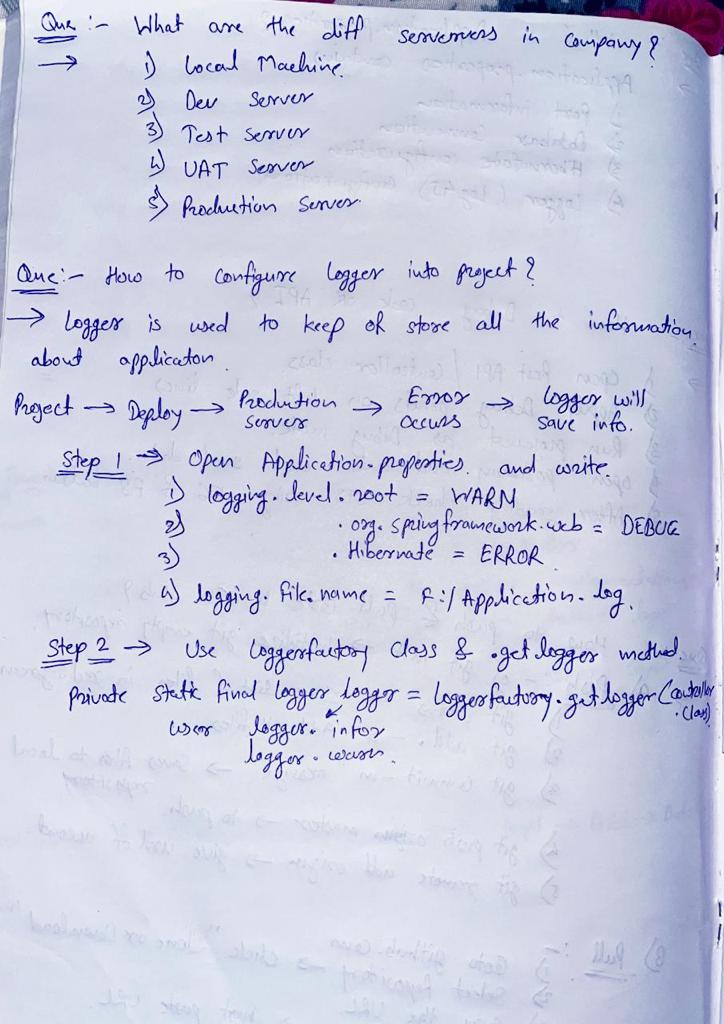 Que :- What are the diff servervess in company?
→ 1) Local Machine.
2) Dev Server
3) Test Server
4) UAT Server
5) Production Server.
Que:- How to configure logger into project?
→ Logger is used to keep of store all the information.
about applicaton.
Project → Deploy → Production server → Error occurs → logger will save info.
Step 1 → Open Application.properties. and write.
1) logging.level.root = WARM
2) .org.springframework.web = DEBUG
3) .Hibernate = ERROR
4) logging.file.name = F:/Application.log.
Step 2 → Use Loggerfactory Class & .getlogger method.
Private static final logger logger = Loggerfactory.getlogger(controller.class)
logger.infor
logger.warn.